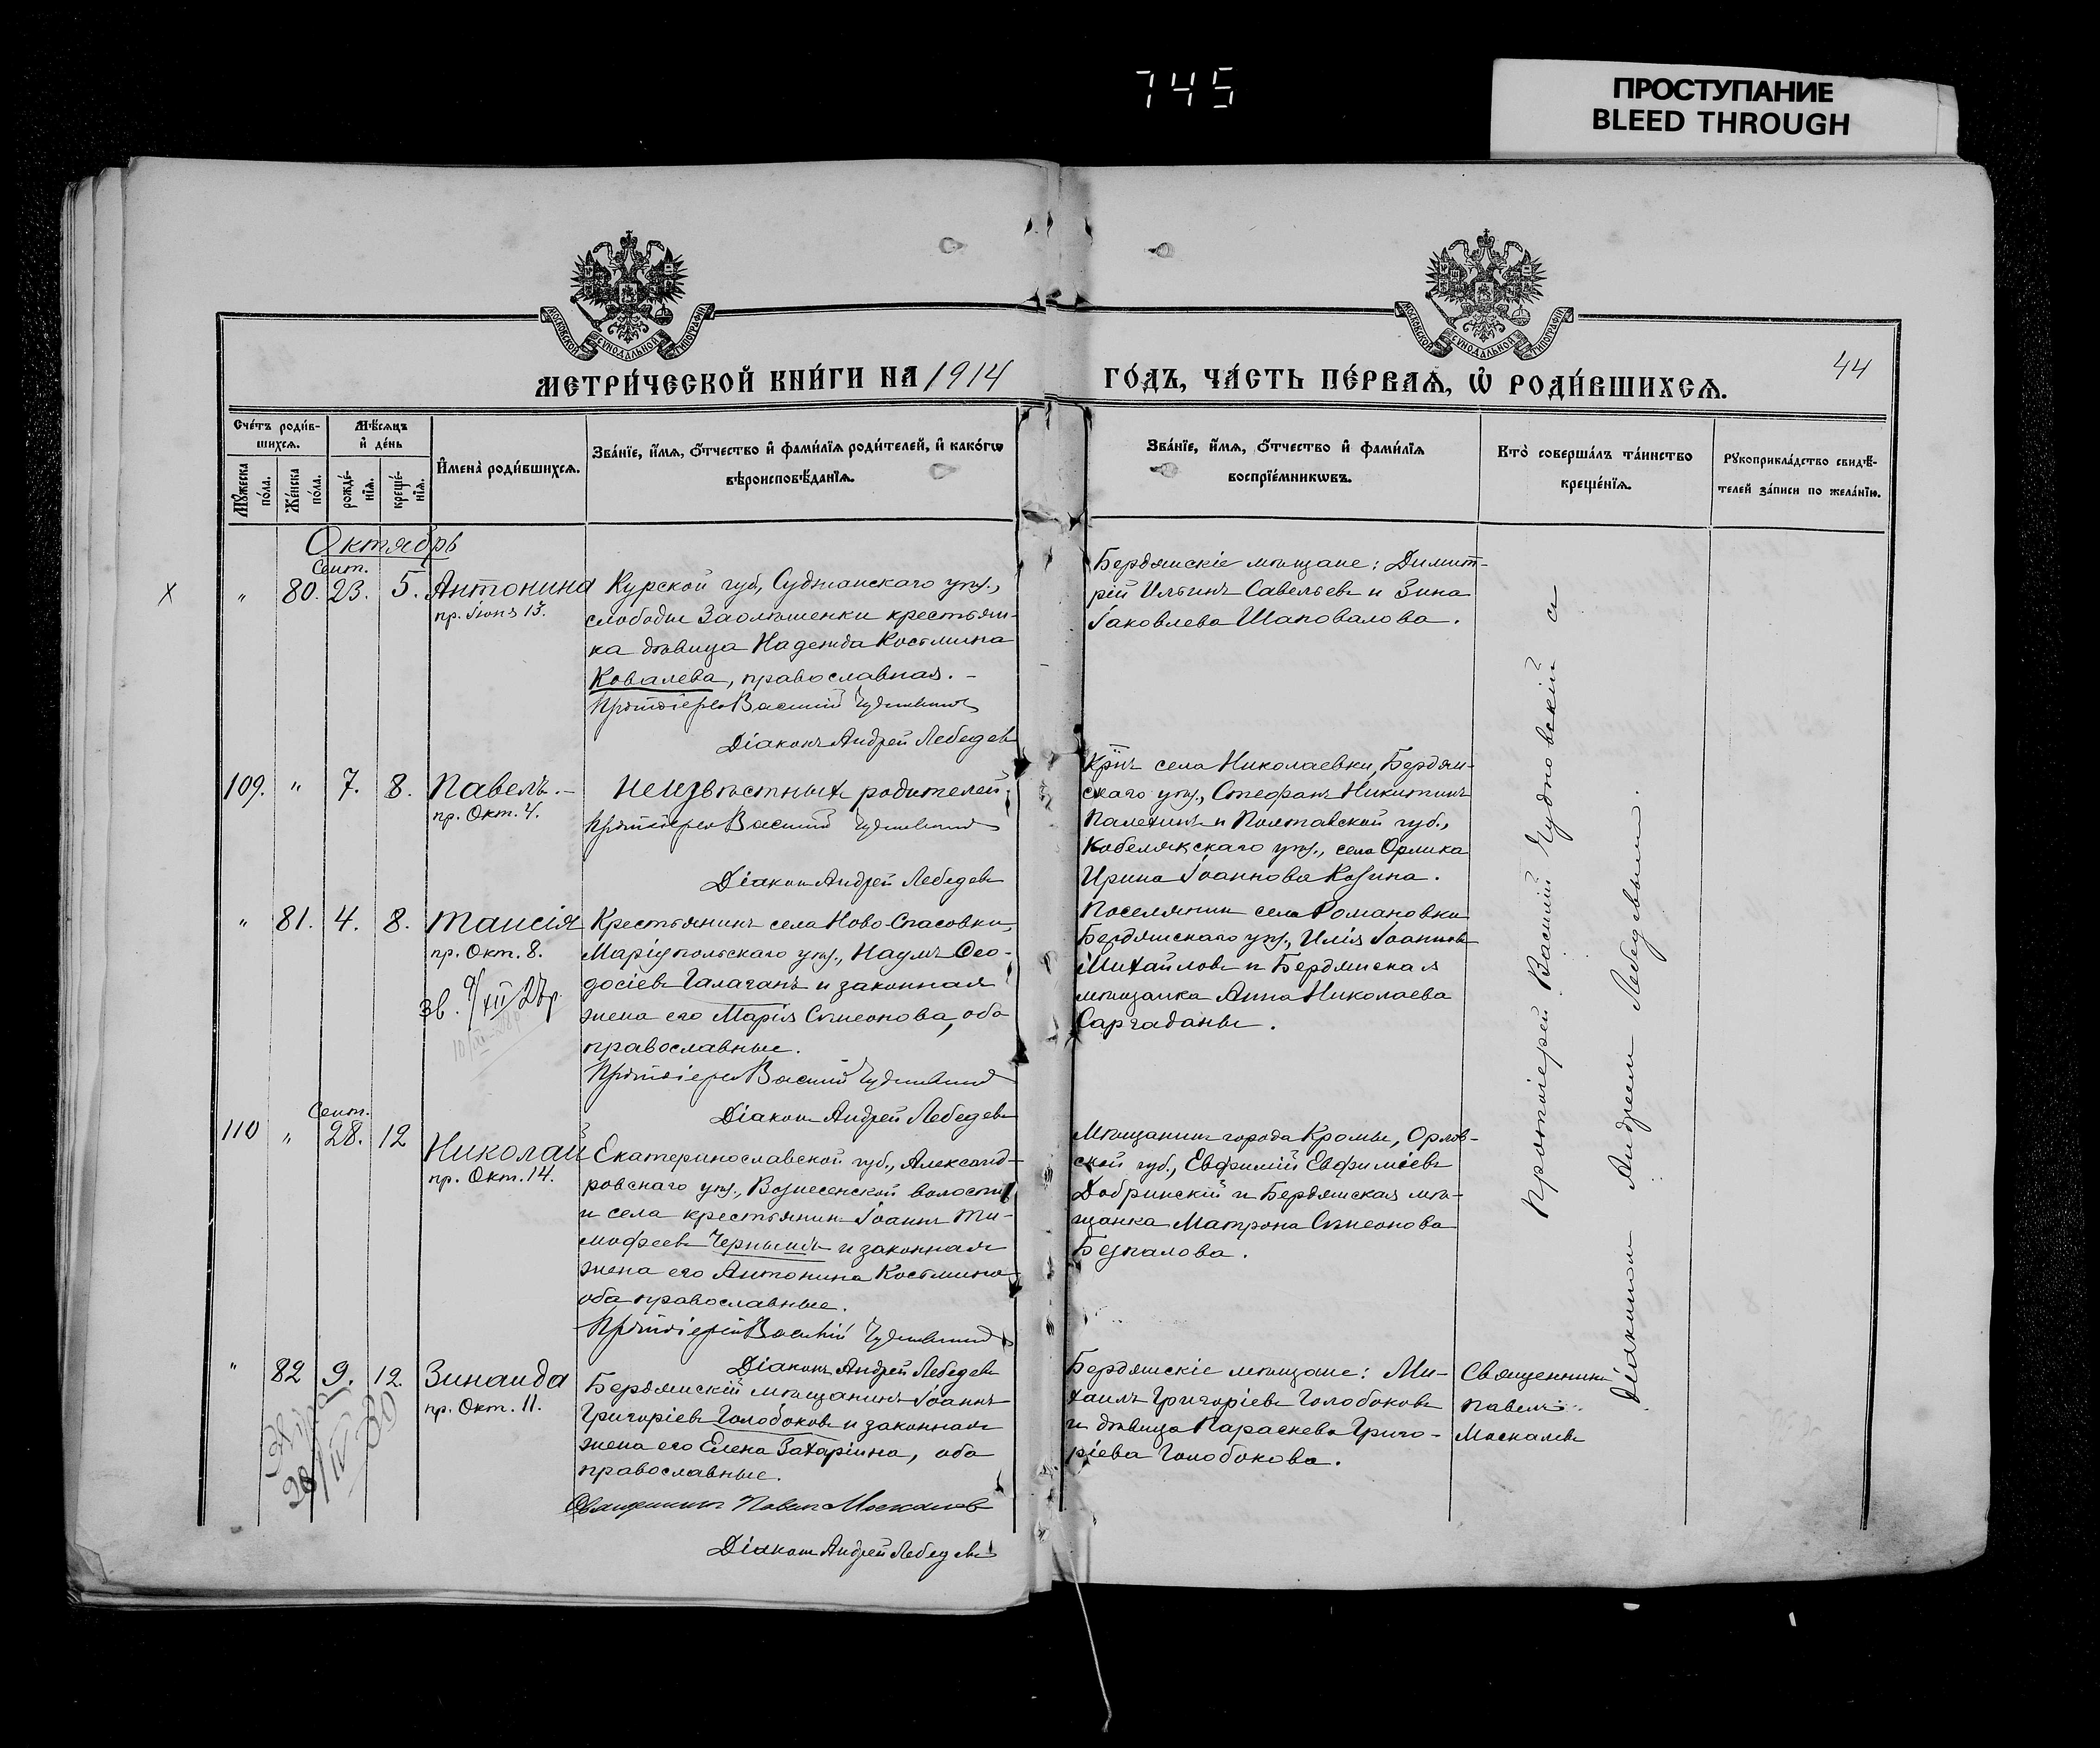 745
ПРОСТУПАНИЕ
BLEED THROUGH
МОСКОВСКОЙ СУНОДАЛЬНОЙ ТИПОГРАФІИ
МОСКОВСКОЙ СУНОДАЛЬНОЙ ТИПОГРАФІИ
МЕТРИ́ЧЕСКОЙ КНИ́ГИ НА 1914
ГО́ДЪ, ЧА́СТЬ ПЕ́РВАѦ, Ѡ РОДИ́ВШИХСѦ.
44
Сче́тъ роди́в-
шихсѧ.
Мѣ́сѧцъ
и҆ де́нь
Мꙋ́жеска по́ла.
Же́нска по́ла.
рожде́-
нїѧ.
креще́-
нїѧ.
И҆мена̀ роди́вшихсѧ.
Зва́нїе, и҆́мѧ, ѻ҆́тчество и҆ фами́лїѧ роди́телей, и҆ како́гѡ
вѣроисповѣ́данїѧ.
Зва́нїе, и҆́мѧ, ѻ҆́тчество и҆ фами́лїѧ
воспрїе́мникѡвъ.
Кто̀ соверша́лъ та́инство
креще́нїѧ.
Рꙋкоприкла́дство свидѣ́-
телей за́писи по жела́нїю.
Октябрь
Сент.
х " 80. 23. 5. Антонина
пр. Іюнь 13.
Курской губ., Суджанскаго уѣз.,
слободы Заолѣшенки крестьян-
ка дѣвица Надежда Космина
Ковалева, православная. -
Протоіерей Василій Чудновскій
Діаконъ Андрей Лебедевъ
Бердянскіе мѣщане: Димит-
рій Ильинъ Савельевъ и Зина
Іаковлева Шаповалова.
109. " 7. 8. Павелъ. -
пр. Окт. 4.
Неизвѣстныхъ родителей.
Протоіерей Василій Чудновскій
Діаконъ Андрей Лебедевъ
Крнъ села Николаевки, Бердян-
скаго уѣз., Стефанъ Никитинъ
Палехинъ и Полтавской губ.,
Кобелякскаго уѣз., села Орлика
Ирина Іоаннова Козина.
" 81. 4. 8. Таисія
пр. Окт. 8.
зв. 9/XII 27 р.
Крестьянинъ села Ново-Спасовки,
Маріупольскаго уѣз., Наумъ Ѳео-
досіевъ Галаганъ и законная
жена его Марія Сѵмеонова, оба
православные.
Протоіерей Василій Чудновскій
Діаконъ Андрей Лебедевъ
Поселянинъ села Романовки
Бердянскаго уѣз., Илія Іоанновъ
Михайловъ и Бердянская
мѣщанка Анна Николаева
Саргаданы.
Сент.
110 " 28. 12 Николай
пр. Окт. 14.
Екатеринославской губ., Александ-
ровскаго уѣз., Вознесенской волости
и села крестьянинъ Іоаннъ Ти-
мофеевъ Чернышъ и законная
жена его Антонина Космина
оба православные.
Протоіерей Василій Чудновскій
Діаконъ Андрей Лебедевъ
Мѣщанинъ города Кромы, Орлов-
ской губ., Евфимій Евфиміевъ
Добринскій и Бердянская мѣ-
щанка Матрона Сѵмеонова
Безпалова.
" 82 9. 12. Зинаида
пр. Окт. 11.
Бердянскій мѣщанинъ Іоаннъ
Григоріевъ Голобоковъ и законная
жена его Елена Захаріина, оба
православные.
Священникъ Павелъ Москалевъ
Діаконъ Андрей Лебедевъ
Бердянскіе мѣщане: Ми-
хаилъ Григоріевъ Голобоковъ
и дѣвица Параскева Григо-
ріева Голобокова.
Священникъ
Павелъ
Москалевъ
Протоіерей Василій Чудновскій съ
Діакономъ Андреемъ Лебедевымъ.